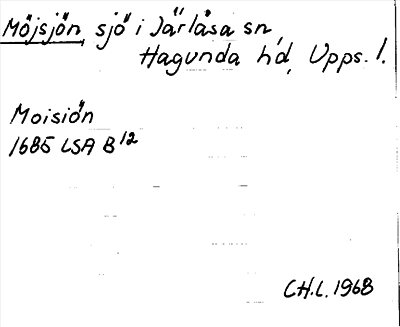 Möjsjön, sjö i Järlåsa sn,
Hagunda hd, Upps. l.
Moisiön
1685 LSA B 12
CH.L. 1968